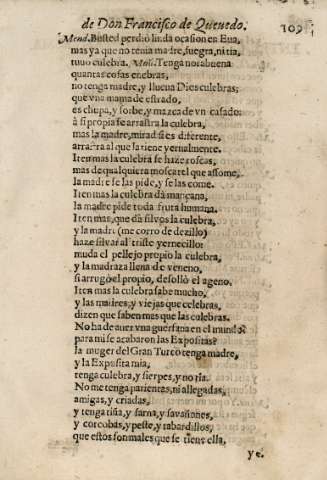 de Don Francisco de Queuedo. 109
Mend. Busted perdio linda ocasion en Eua,
mas ya que no tenia madre, suegra, ni tia,
tuuo culebra. Muñ. Tenga norabuena
quantas cosas enebras,
no tenga madre, y llueua Dios culebras;
que vna mama de estrado,
es chupa, y sorbe, y mazca de vn casado:
à si propia se arrastra la culebra,
mas la madre, mirad si es diferente,
arrastra al que la tiene yernalmente.
Iten mas la culebra se haze roscas,
mas de qualquiera moscatel que assome,
la madre se las pide, y se las come.
Iten mas la culebra dà mançana,
la madre pide toda fruta humana.
Iten mas, que dà silvos la culebra,
y la madre (me corro de dezillo)
haze silvar al triste yernecillo:
muda el pellejo propio la culebra,
y la madraza llena de veneno,
si arrugò el propio, desollò el ageno.
Iten mas la culebra sabe mucho,
y las madres, y viejas que celebras,
dizen que saben mas que las culebras.
No ha de auer vna guerfana en el mundo?
para mi se acabaron las Expositas?
la muger del Gran Turco tenga madre,
y la Exposita mia,
tenga culebra, y sierpes, y no tia.
No me tenga parientas, ni allegadas,
amigas, y criadas,
y tenga tiña, y sarna, y savañones,
y corcobas, y peste, y tabardillos,
que estos son males que se tiene ella,
ye.